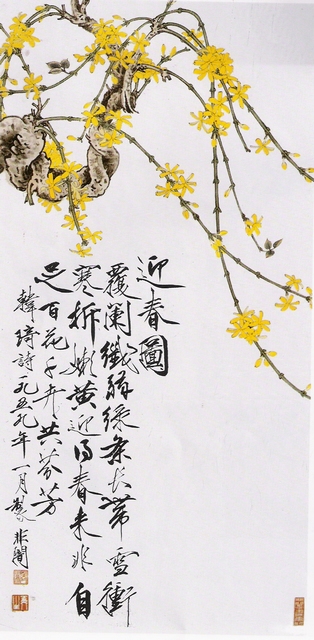 迎春圖
覆闌纖弱緑条长帶雪衝
寒折嫩黄迎得春来非自
足百花千卉共芬芳
韓琦詩一九五九年一月製 非闇